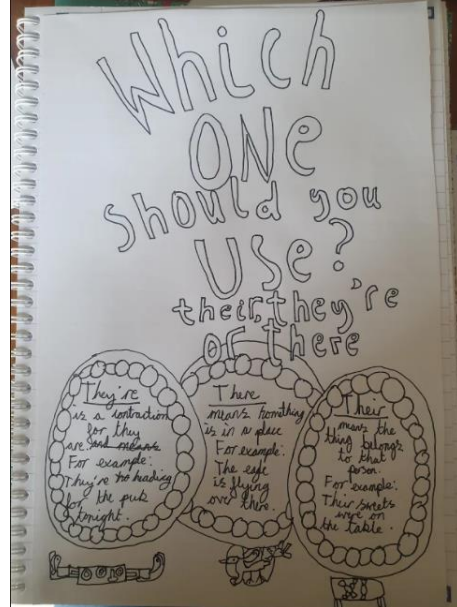 Which
ONe
should you
Use?
their, they're
or there
They're
is a contraction
for they
are. and means
For example:
They're to heading
for the pub
tonight.
There
means something
is in a place
For example:
The
is flying
over there.
Their
means the
thing belongs
to that
person.
For example:
Their sweets
were on
the table.